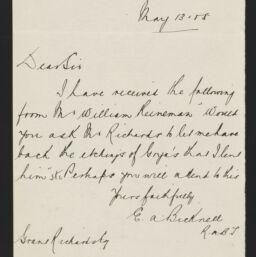 May 13·08
Dear Sir
I have received the following
from Mr William Reineman "Would
you ask Mr Richards to let me have
back the etchings of Goya's that I lent
him" Perhaps you will attend to this
Yours faithfully
E. A Bicknell
Grant Richards Esq